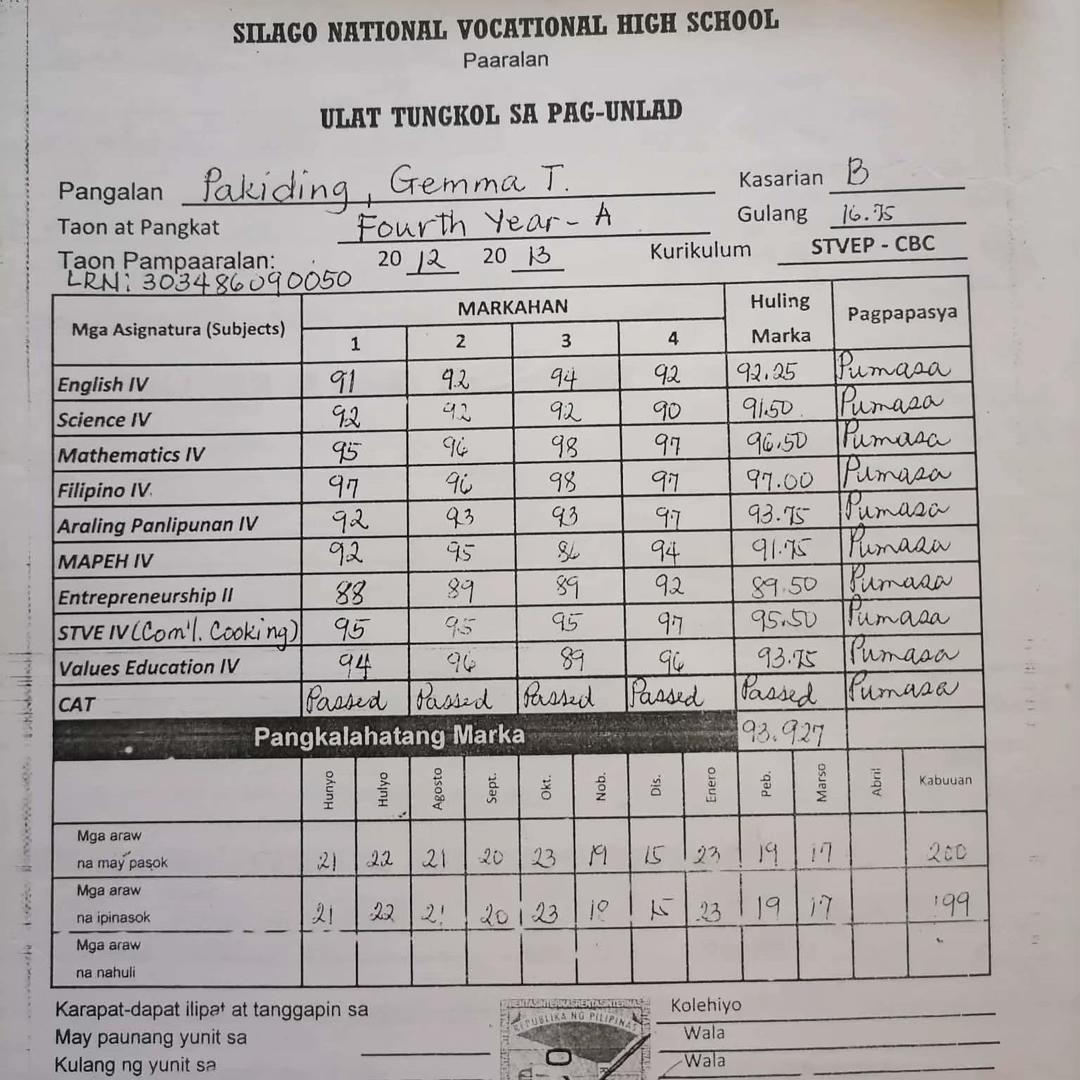 SILAGO NATIONAL VOCATIONAL HIGH SCHOOL
Paaralan
ULAT TUNGKOL SA PAG-UNLAD
Pangalan Pakiding, Gemma T. Kasarian B
Taon at Pangkat Fourth Year - A Gulang 16.75
Taon Pampaaralan: 20 12 20 13 Kurikulum STVEP - CBC
LRN: 303486090050
Mga Asignatura (Subjects) MARKAHAN Huling Marka Pagpapasya
1 2 3 4
English IV 91 92 94 92 92.25 Pumasa
Science IV 92 92 92 90 91.50 Pumasa
Mathematics IV 95 96 98 97 96.50 Pumasa
Filipino IV 97 96 98 97 97.00 Pumasa
Araling Panlipunan IV 92 93 93 97 93.75 Pumasa
MAPEH IV 92 95 86 94 91.75 Pumasa
Entrepreneurship II 88 89 89 92 89.50 Pumasa
STVE IV (Com'l. Cooking) 95 95 95 97 95.50 Pumasa
Values Education IV 94 96 89 96 93.75 Pumasa
CAT Passed Passed Passed Passed Passed Pumasa
Pangkalahatang Marka 93.927
Hunyo Hulyo Agosto Sept. Okt. Nob. Dis. Enero Peb. Marso Abril Kabuuan
Mga araw
na may pasok 21 22 21 20 23 19 15 23 19 17 200
Mga araw
na ipinasok 21 22 21 20 23 18 15 23 19 17 199
Mga araw
na nahuli
Karapat-dapat ilipat at tanggapin sa Kolehiyo
May paunang yunit sa Wala
Kulang ng yunit sa Wala
REPUBLIKA NG PILIPINAS